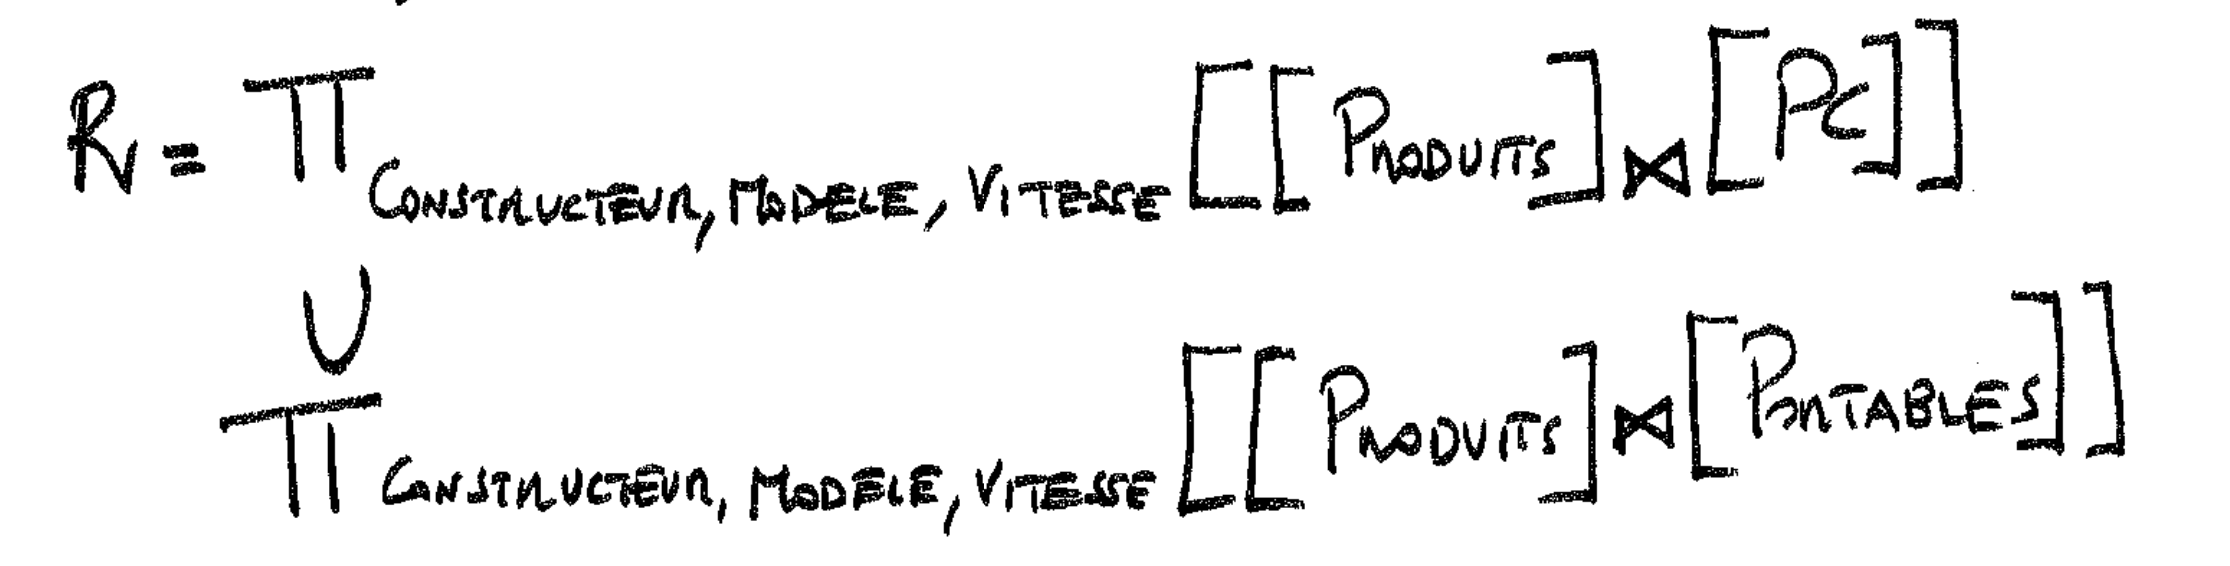 R = Π CONSTRUCTEUR, MODELE, VITESSE [[PRODUITS] ⋈ [PC]]
∪
Π CONSTRUCTEUR, MODELE, VITESSE [[PRODUITS] ⋈ [PORTABLES]]